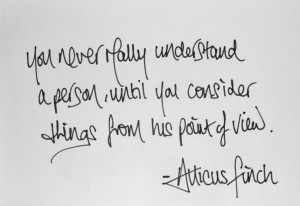 you never really understand
a person, until you consider
things from his point of view.
- Atticus finch